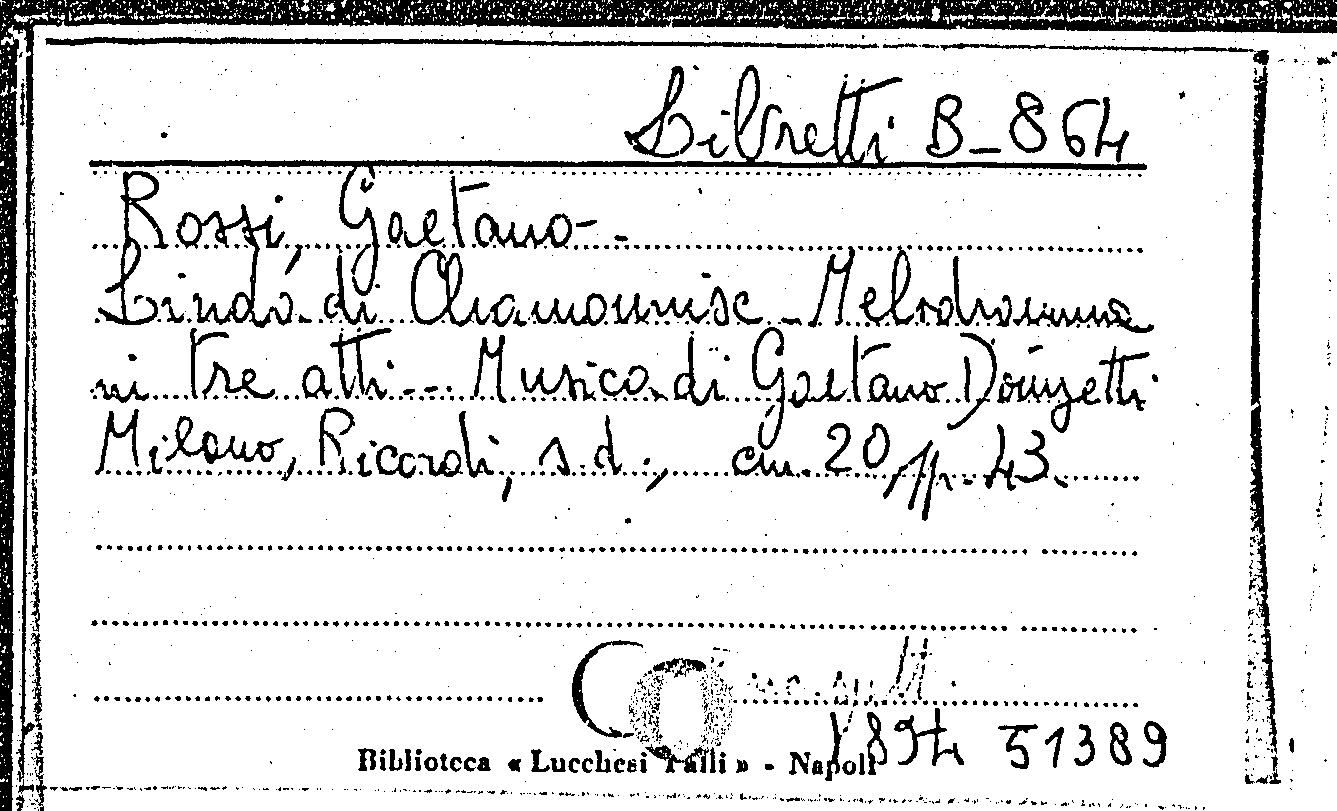 Libretti B-864
Rossi, Gaetano-.
Linda di Chamounise - Melodramma
in tre atti... Musica di Gaetano Donizetti
Milano, Ricordi, s.d., cm. 20, pp. 43.
1894 51389
Biblioteca « Lucchesi Palli » - Napoli